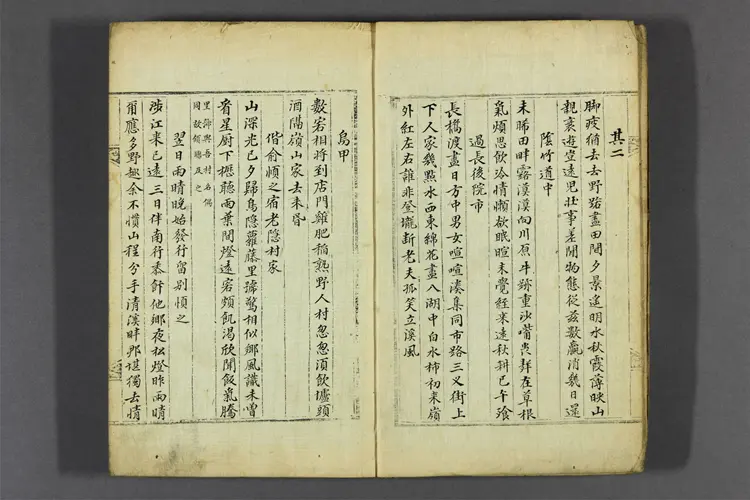 其二
脚疲稍去去野路盡田間夕景遙明水秋霞薄映山
親衰遊豈遠児壯事差閒物態従玆數羸消幾日還
陰竹道中
未晞田畔露漠漠向川原牛跡重沙嘴喪群在草根
氣煩思飲冷情懶欲眠暄未覺経来遠秋斜已午飱
過長後院市
長橋渡盡日方中男女喧喧湊集同市路三叉街上
下人家幾點水西東綿花盡入湖中白水柿初来嶺
外紅左右誰非登壟斷老夫孤笑立溪風
烏甲
數宕相将到店門雞肥稲熟野人村忽忽須飲壚頭
酒隔嶺山家去未昏
偕俞愼之宿老隠村家
山深光已夕歸鳥隠蘿藤里號驚相似鄕風識未曽
看星厨下壢聽雨葉間燈遠宕頻飢渇欣聞飯氣騰
里號與吾村名偶
同故頷聯及之
翌日雨晴晩始發行留別愼之
涉江来已遠三日伴南行黍飰他鄕夜松燈昨雨晴
甭應多野趣余不慣山程分手清溪畔那堪獨去情